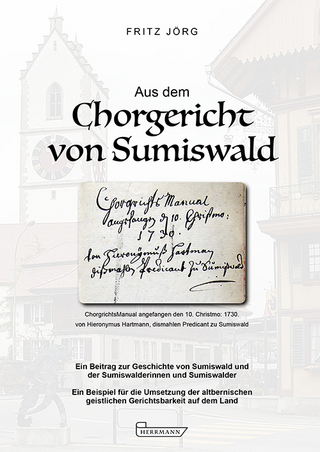 FRITZ JÖRG
Aus dem
Chorgericht
von Sumiswald
Chorgrichts Manual
angefangen d 10. Christmo:
1730.
von Hieronymuß Hartman
dißmahlen Predicant zu Sumißwald
ChorgrichtsManual angefangen den 10. Christmo: 1730.
von Hieronymus Hartmann, dismahlen Predicant zu Sumiswald
Ein Beitrag zur Geschichte von Sumiswald und
der Sumiswalderinnen und Sumiswalder
Ein Beispiel für die Umsetzung der altbernischen
geistlichen Gerichtsbarkeit auf dem Land
HERRMANN